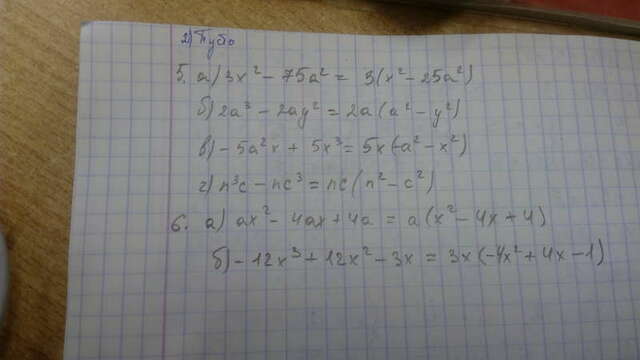 5. а) 3x² - 75a² = 3(x² - 25a²)
б) 2a³ - 2ay² = 2a(a² - y²)
в) - 5a²x + 5x³ = 5x(-a² - x²)
г) n³c - nc³ = nc(n² - c²)
6. а) ax² - 4ax + 4a = a(x² - 4x + 4)
б) - 12x³ + 12x² - 3x = 3x(-4x² + 4x - 1)